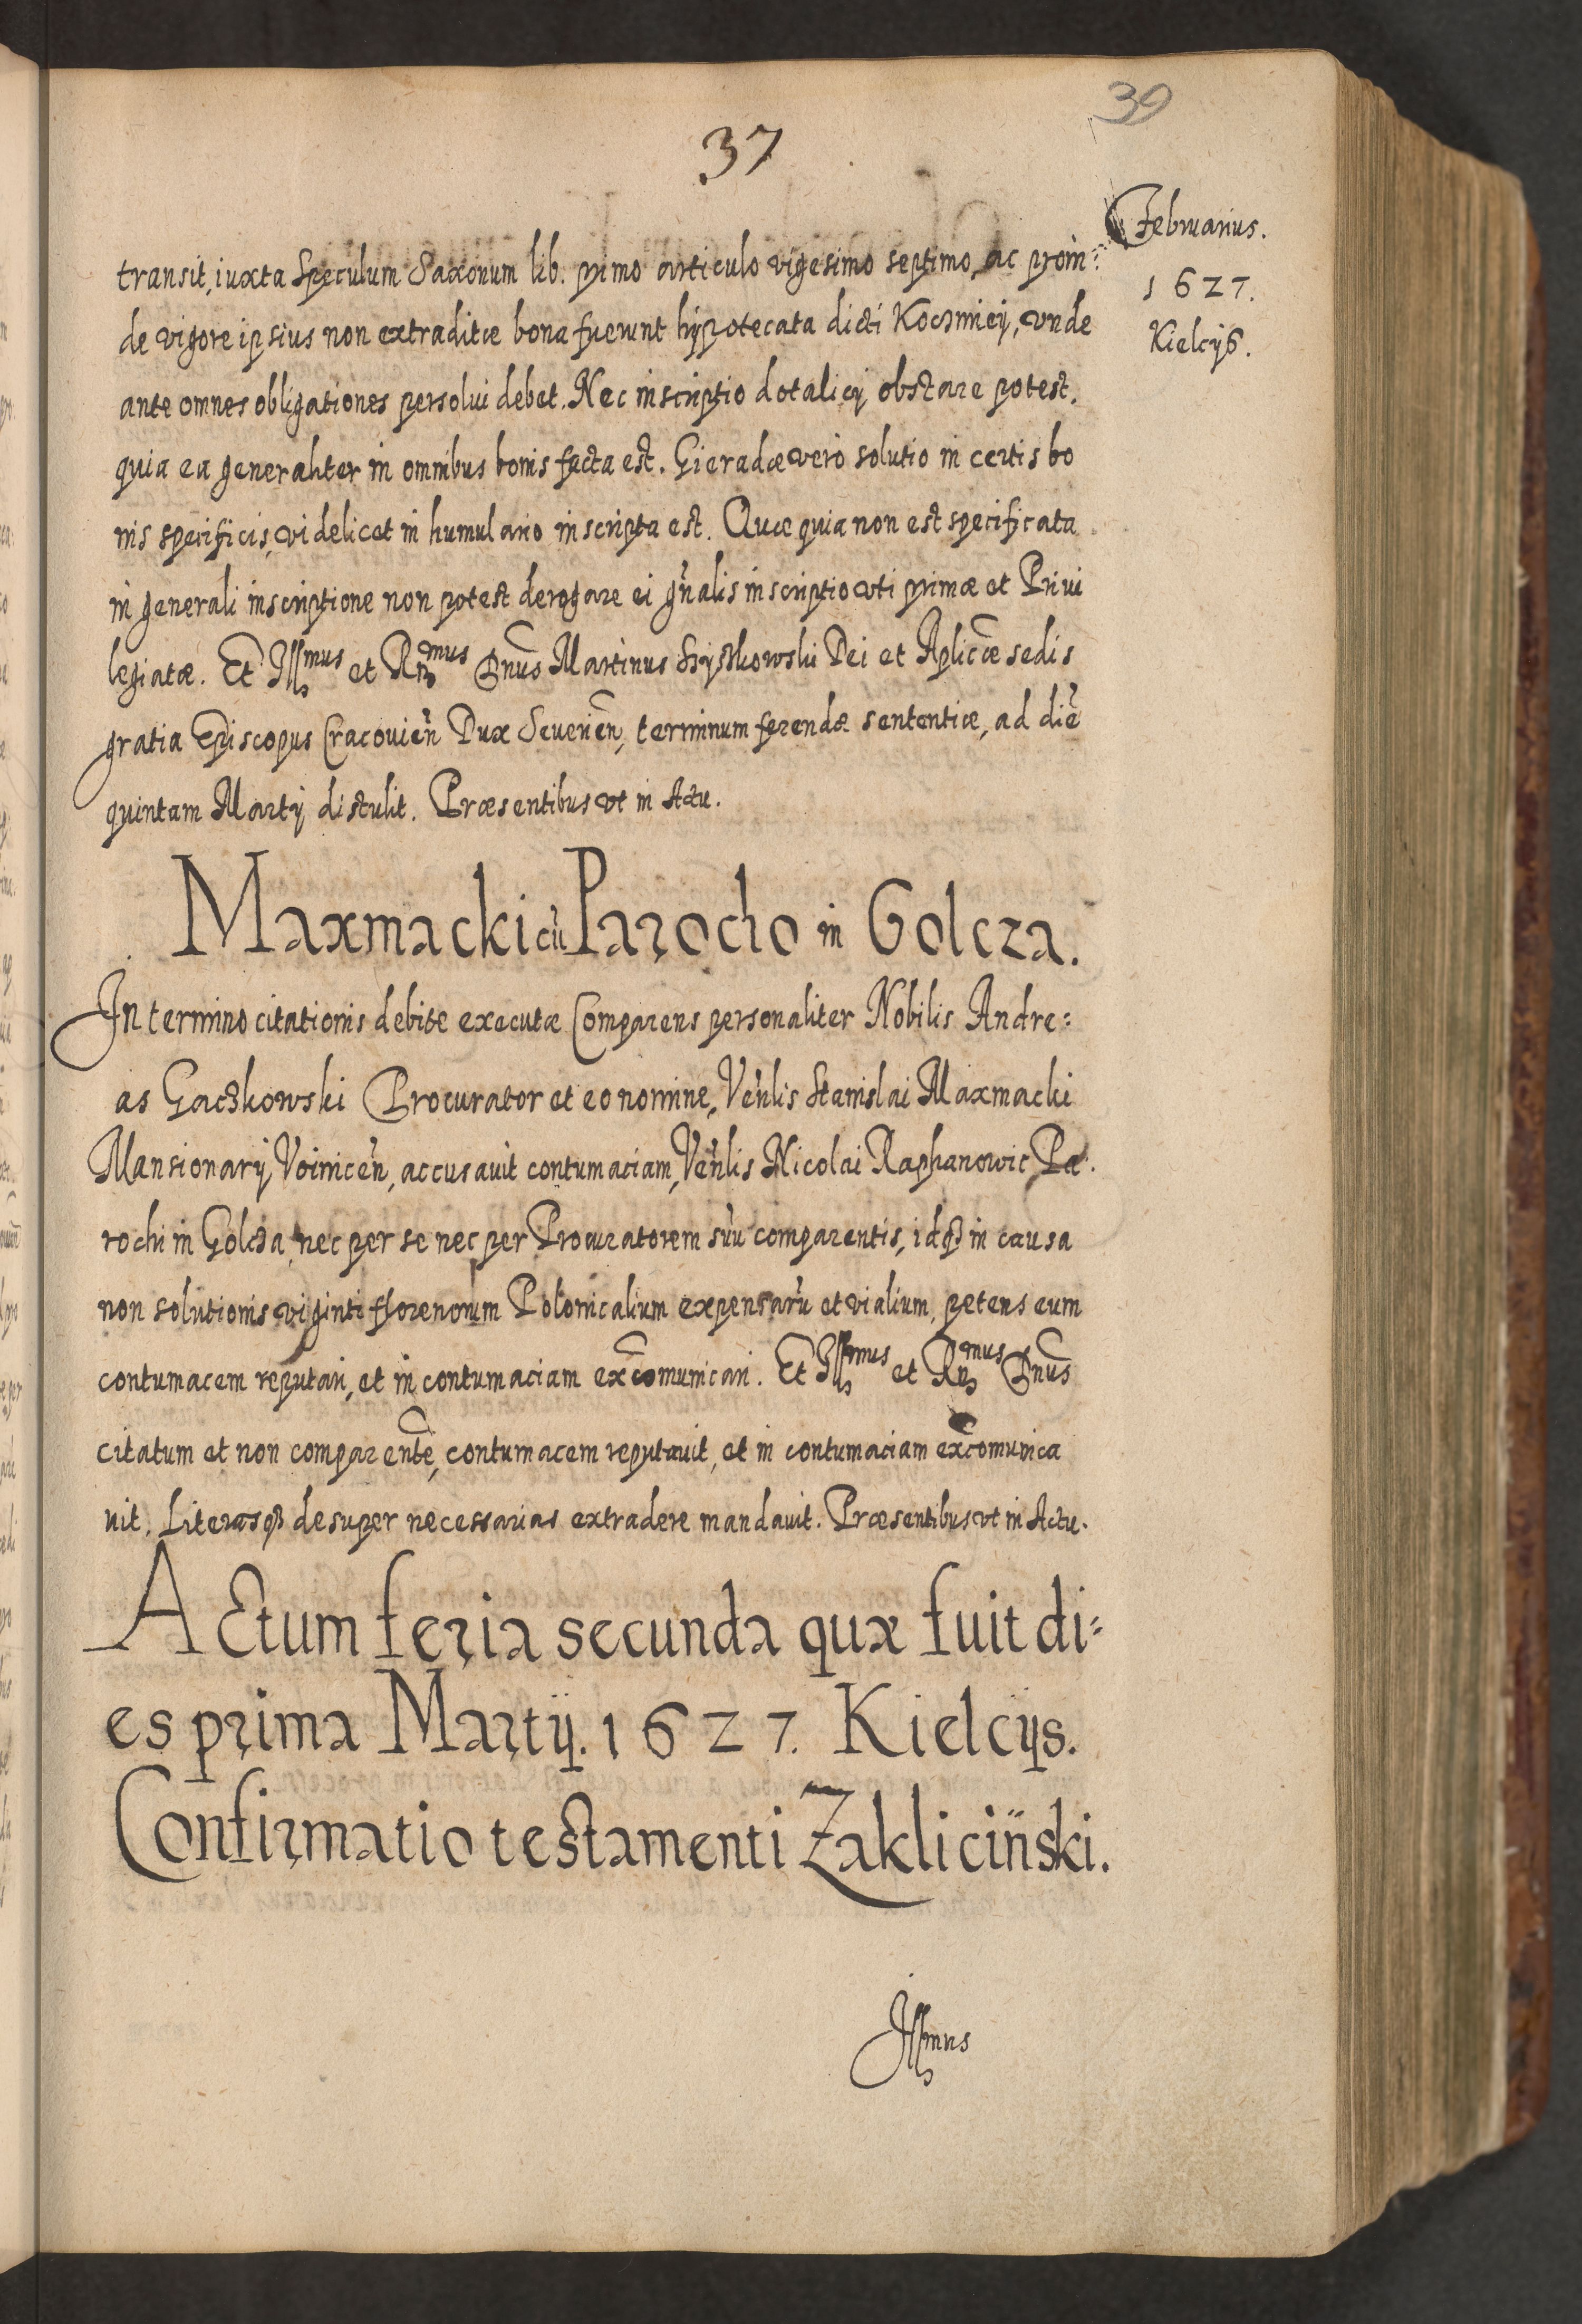 39
37
Februarius.
1627.
Kielcijs.
transit, iuxta Speculum Saxonum lib. primo articulo vigesimo septimo, ac proin:
de vigore ipsius non extraditæ bona fuerunt hypotecata dicti Koczmiey, vnde
ante omnes obligationes persolui debet. Nec inscriptio dotalicij obstare potest.
quia ea generaliter in omnibus bonis facta est. Gieradæ vero solutio in certis bo
nis specificis, videlicet in humulario inscripta est. Quæ quia non est specificata
in generali inscriptione non potest derogare ei gñalis inscriptio vti primæ et Priui
legiatæ. Et Illmus et Rndmus Dnus Martinus Szyszkowski Dei et Aplicæ sedis
gratia Episcopus Cracouień Dux Seuerień, terminum ferendæ sententiæ, ad diē
quintam Martij distulit. Præsentibus vt in Actu.
Maxmacki cū Parocho in Golcza.
In termino citationis debite executæ Comparens personaliter Nobilis Andre:
as Gaczkowski Procurator et eo nomine, Veñlis Stanislai Maxmacki
Mansionarij Voiniceñ, accusauit contumaciam, Veñlis Nicolai Raphanowic, Pa
rochi in Golcza, nec per se nec per Procuratorem suū comparentis, idq3 in causa
non solutionis viginti florenorum Polonicalium expensarū et vialium, petens eum
contumacem reputari, et in contumaciam excōmunicari. Et Illmus et Rndmus Dnus
citatum et non comparentē, contumacem reputauit, et in contumaciam excōmunica
uit. Literasq3 desuper necessarias extradere mandauit. Præsentibus vt in Actu.
Actum feria secunda quæ fuit di:
es prima Martij. 1627. Kielcijs.
Confirmatio testamenti Zakliciński.
Illmus